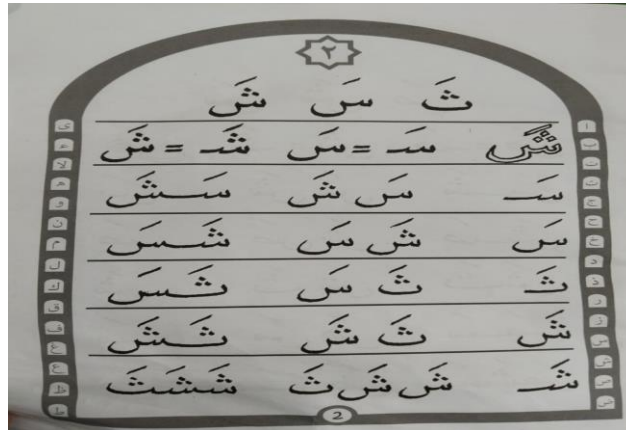 ٢
ثَ سَ شَ
شَ سَـ = سَ شَـ = شَ
سَـ سَ شَ سَـشَ
سَ شَ سَ شَـسَ
ثَ ثَ سَ ثَـسَ
شَ ثَ شَ ثَـشَ
شَـ شَ شَ ثَ شَشَثَ
2